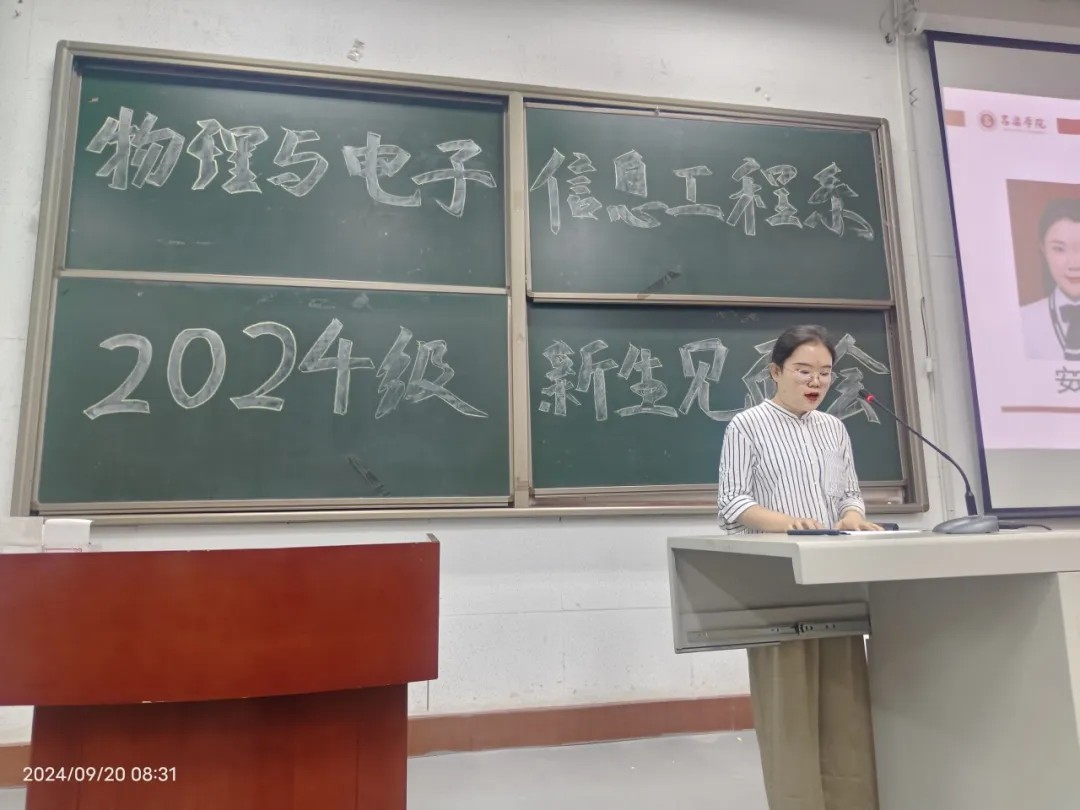 物理与电子 信息工程系
2024级 新生见面会
吕梁学院
安
2024/09/20 08:31